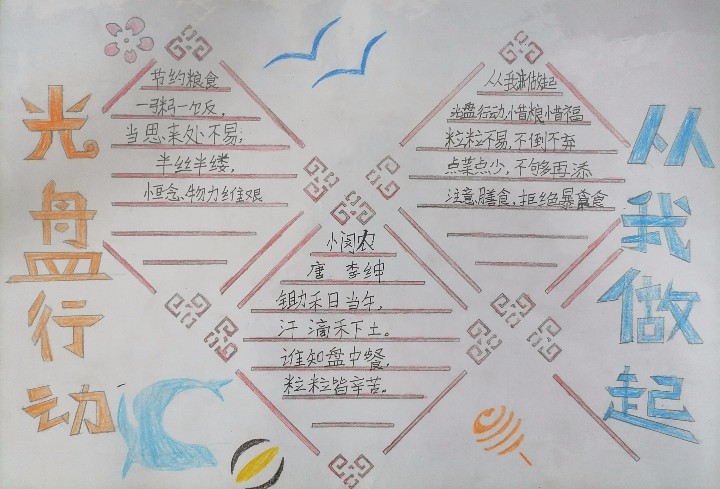 光盘行动
从我做起
节约粮食
一粥一饭，
当思来处不易；
半丝半缕，
恒念、物力维艰
小闵农
唐 李绅
锄禾日当午，
汗滴禾下土。
谁知盘中餐，
粒粒皆辛苦。
从我做起
光盘行动，惜粮惜福
粒粒不易，不倒不弃
点菜点少，不够再添
注意膳食，拒绝暴食